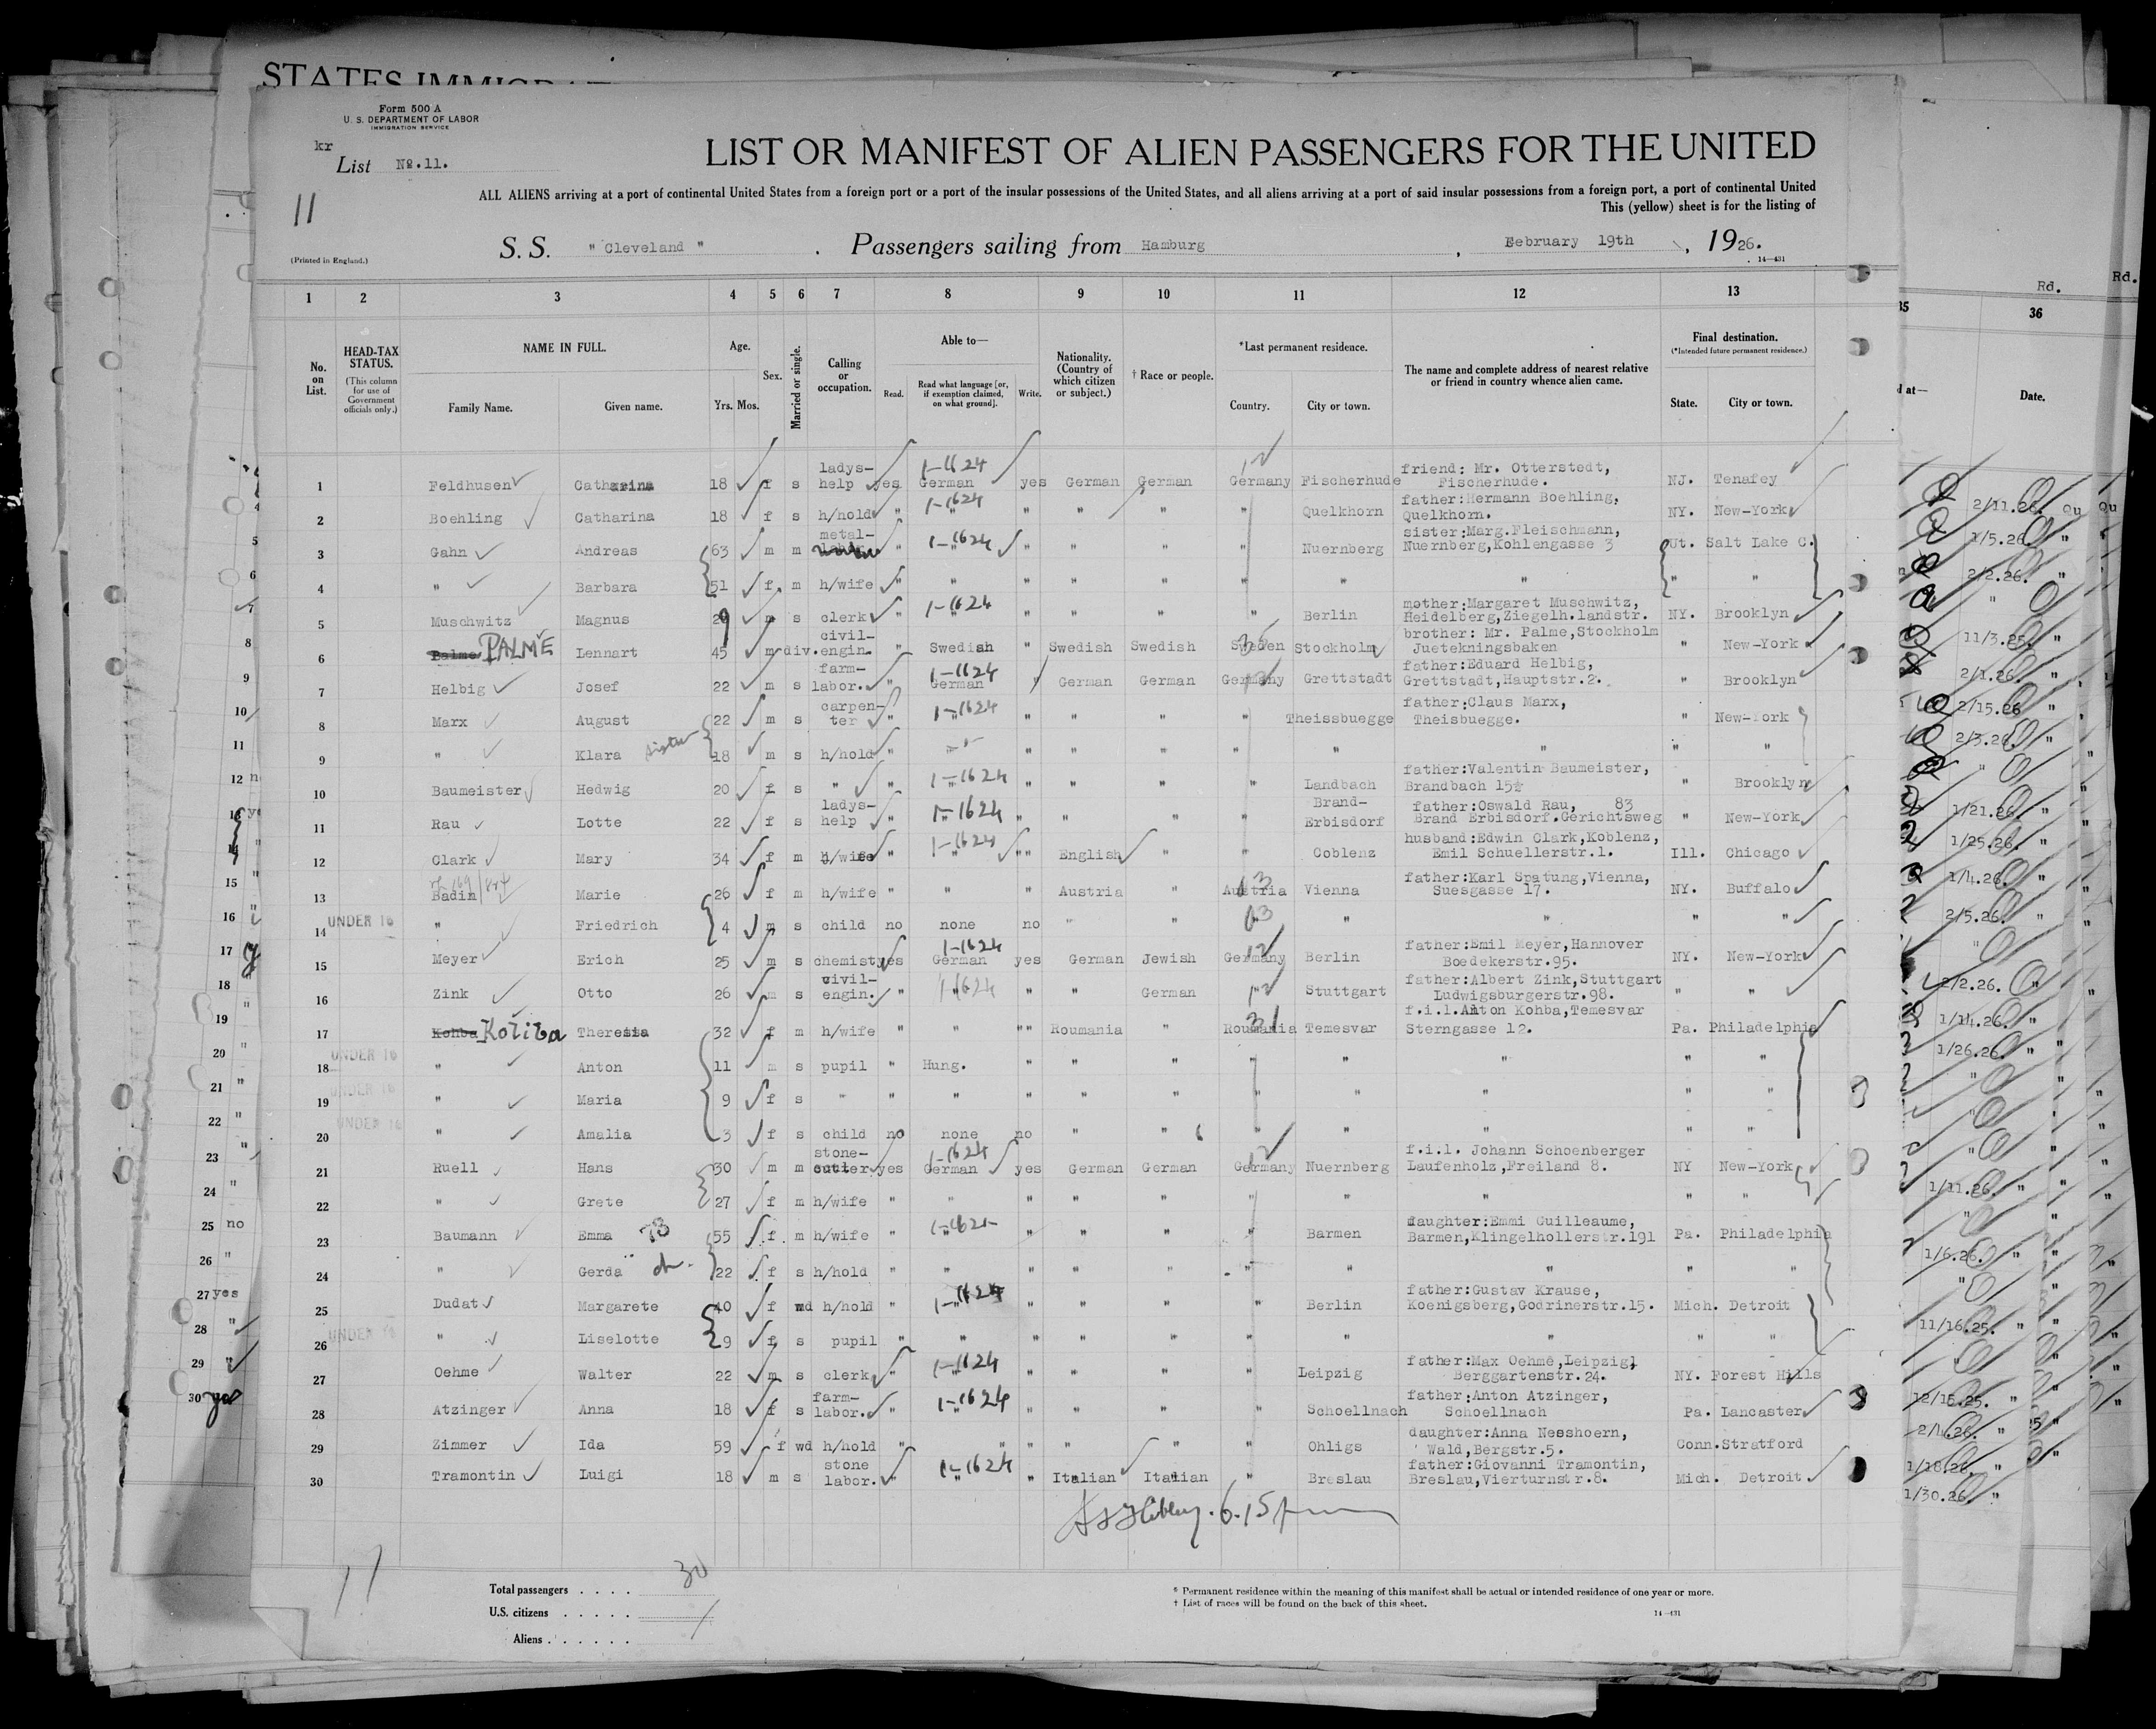 STATES IMMIGRAT
Form 500 A
U. S. DEPARTMENT OF LABOR
IMMIGRATION SERVICE
kr
List No.11.
11
LIST OR MANIFEST OF ALIEN PASSENGERS FOR THE UNITED
ALL ALIENS arriving at a port of continental United States from a foreign port or a port of the insular possessions of the United States, and all aliens arriving at a port of said insular possessions from a foreign port, a port of continental United
This (yellow) sheet is for the listing of
S. S. "Cleveland" . Passengers sailing from Hamburg , February 19th , 1926.
(Printed in England.)
14—431
1 2 3 4 5 6 7 8 9 10 11 12 13
No. on List.
HEAD-TAX STATUS.
(This column for use of Government officials only.)
NAME IN FULL.
Family Name. Given name.
Age.
Yrs. Mos.
Sex.
Married or single.
Calling or occupation.
Able to—
Read. Read what language [or, if exemption claimed, on what ground]. Write.
Nationality. (Country of which citizen or subject.)
† Race or people.
*Last permanent residence.
Country. City or town.
The name and complete address of nearest relative or friend in country whence alien came.
Final destination.
(*Intended future permanent residence.)
State. City or town.
1 Feldhusen Catharina 18 f s ladys-help yes German 1-1624 yes German German Germany Fischerhude friend: Mr. Otterstedt, Fischerhude. NJ. Tenafey
2 Boehling Catharina 18 f s h/hold " " 1-1624 " " " " Quelkhorn father:Hermann Boehling, Quelkhorn. NY. New-York
3 Gahn Andreas 63 m m metal- " " 1-1624 " " " " Nuernberg sister:Marg.Fleischmann, Nuernberg,Kohlengasse 3 Ut. Salt Lake C.
4 " Barbara 51 f m h/wife " " " " " " " " " "
5 Muschwitz Magnus 29 m s clerk " " 1-1624 " " " " Berlin mother:Margaret Muschwitz, Heidelberg,Ziegelh.landstr. NY. Brooklyn
6 Palme PALME Lennart 45 m div. civil-engin. " Swedish " Swedish Swedish Sweden Stockholm brother: Mr. Palme,Stockholm Juetekningsbaken " New-York
7 Helbig Josef 22 m s farm-labor. " German 1-1624 " German German Germany Grettstadt father:Eduard Helbig, Grettstadt,Hauptstr.2. " Brooklyn
8 Marx August 22 m s carpen-ter " " 1-1624 " " " " Theissbuegge father:Claus Marx, Theisbuegge. " New-York
9 " Klara sister 18 m s h/hold " " " " " " " " "
10 Baumeister Hedwig 20 f s " " " 1-1624 " " " " Landbach father:Valentin Baumeister, Brandbach 15 " Brooklyn
11 Rau Lotte 22 f s ladys-help " " 1-1624 " " " " Brand-Erbisdorf father:Oswald Rau, 83 Brand Erbisdorf.Gerichtsweg " New-York
12 Clark Mary 34 f m h/wife " " 1-1624 "" English " " Coblenz husband:Edwin Clark,Koblenz, Emil Schuellerstr.1. Ill. Chicago
13 Badin Marie 26 f m h/wife " " " Austria " Austria Vienna father:Karl Spatung,Vienna, Suesgasse 17. NY. Buffalo
14 UNDER 16 " Friedrich 4 m s child no none no " " " " " " "
15 Meyer Erich 25 m s chemist yes German 1-1624 yes German Jewish Germany Berlin father:Emil Meyer,Hannover Boedekerstr.95. NY. New-York
16 Zink Otto 26 m s civil-engin. " " 1-1624 " " German " Stuttgart father:Albert Zink,Stuttgart Ludwigsburgerstr.98. " "
17 Kohba Koliba Theresia 32 f m h/wife " " "" Roumania " Roumania Temesvar f.i.l.Anton Kohba,Temesvar Sterngasse 12. Pa. Philadelphia
18 UNDER 16 " Anton 11 m s pupil " Hung. " " " " " " " "
19 UNDER 16 " Maria 9 f s " " " " " " " " " " "
20 UNDER 16 " Amalia 3 f s child no none no " " " " " " "
21 Ruell Hans 30 m m stone-cutter yes German 1-1624 yes German German Germany Nuernberg f.i.l. Johann Schoenberger Laufenholz,Freiland 8. NY New-York
22 " Grete 27 f m h/wife " " " " " " " " " "
23 Baumann Emma 55 f m h/wife " " " " " " Barmen daughter:Emmi Guilleaume, Barmen,Klingelhollerstr.191 Pa. Philadelphia
24 " Gerda 22 f s h/hold " " " " " " " " " "
25 Dudat Margarete 40 f wd h/hold " " 1-1624 " " " " Berlin father:Gustav Krause, Koenigsberg,Godrinerstr.15. Mich. Detroit
26 UNDER 16 " Liselotte 9 f s pupil " " " " " " " " " "
27 Oehme Walter 22 m s clerk " " 1-1624 " " " " Leipzig father:Max Oehme,Leipzig, Berggartenstr.24. NY. Forest Hills
28 Atzinger Anna 18 f s farm-labor. " " 1-1624 " " " " Schoellnach father:Anton Atzinger, Schoellnach Pa. Lancaster
29 Zimmer Ida 59 f wd h/hold " " " " " " Ohligs daughter:Anna Nesshoern, Wald,Bergstr.5. Conn. Stratford
30 Tramontin Luigi 18 m s stone labor. " " 1-1624 " Italian Italian " Breslau father:Giovanni Tramontin, Breslau,Vierturnstr.8. Mich. Detroit
Total passengers . . . . 30
U.S. citizens . . . . .
Aliens . . . . . .
* Permanent residence within the meaning of this manifest shall be actual or intended residence of one year or more.
† List of races will be found on the back of this sheet.
14—431
Rd. Rd.
35 36
d at— Date.
2/11.26. Qu Qu
1/5.26. "
2/2.26. "
"
11/3.25. "
2/1.26. "
2/15.26
2/3.26. "
"
1/21.26. "
1/25.26. "
1/4.26. "
2/5.26. "
"
2/2.26. "
1/14.26. "
1/26.26. "
"
"
"
1/11.26. "
"
1/6.26. "
"
11/16.25. "
"
12/15.25. "
2/4.26. "
1/18.26. "
1/30.26. "